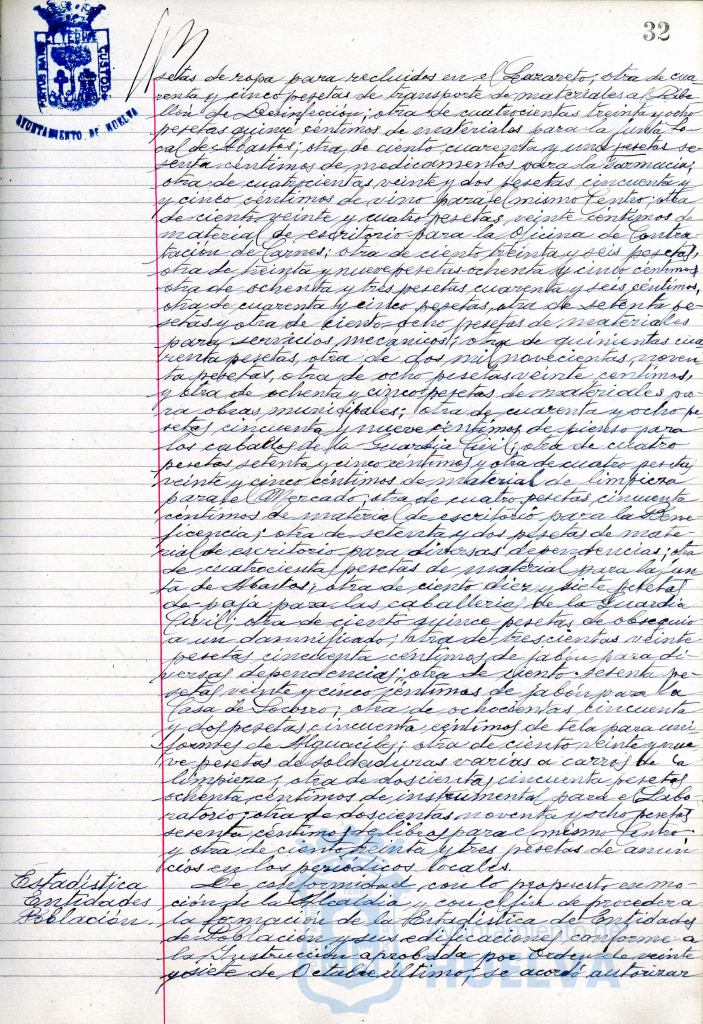 32
AYUNTAMIENTO DE HUELVA
setas de ropa para recluidos en el Lazareto; otra de cua
renta y cinco pesetas de transporte de materiales al Pabe
llón de Desinfección; otra de cuatrocientas treinta y ocho
pesetas quince céntimos de materiales para la Junta Lo
cal de Abastos; otra de ciento cuarenta y una pesetas se
senta céntimos de medicamentos para la Farmacia;
otra de cuatrocientas veinte y dos pesetas cincuenta y
y cinco céntimos de vino para el mismo Centro; otra
de ciento veinte y cuatro pesetas, veinte céntimos de
material de escritorio para la Oficina de Contra
tación de Carnes; otra de ciento treinta y seis pesetas,
otra de treinta y nueve pesetas ochenta y cinco céntimos,
otra de ochenta y tres pesetas cuarenta y seis céntimos,
otra de cuarenta y cinco pesetas, otra de setenta pe
setas y otra de ciento ocho pesetas de materiales
para servicios mecánicos; otra de quinientas cua
renta pesetas, otra de dos mil novecientas noven
ta pesetas, otra de ocho pesetas veinte céntimos,
y otra de ochenta y cinco pesetas de materiales pa
ra obras municipales; otra de cuarenta y ocho pe
setas cincuenta y nueve céntimos de pienso para
los caballos de la Guardia Civil; otra de cuatro
pesetas setenta y cinco céntimos y otra de cuatro pesetas
veinte y cinco céntimos de material de limpieza
para el Mercado; otra de cuatro pesetas cincuenta
céntimos de material de escritorio para la Bene
ficencia; otra de setenta y dos pesetas de mate
rial de escritorio para diversas dependencias; otra
de cuatrocientas pesetas de material para la Jun
ta de Abastos; otra de ciento diez y siete pesetas
de paja para las caballerías de la Guardia
Civil; otra de ciento quince pesetas de obsequio
a un damnificado; otra de trescientas veinte
pesetas cincuenta céntimos de jabón para di
versas dependencias; otra de ciento sesenta pe
setas veinte y cinco céntimos de jabón para la
Casa de Socorro; otra de ochocientas cincuenta
y dos pesetas cincuenta céntimos de tela para uni
formes de Alguaciles; otra de ciento veinte y nue
ve pesetas de soldaduras varias a carros de la
limpieza; otra de doscientas cincuenta pesetas
ochenta céntimos de instrumental para el Labo
ratorio; otra de doscientas noventa y ocho pesetas
sesenta céntimos de libros para el mismo Centro
y otra de ciento treinta y tres pesetas de anun
cios en los periódicos locales.
Estadística
Entidades
Población.
De conformidad con lo propuesto en mo
ción de la Alcaldía y con el fin de proceder a
la formación de la Estadística de Entidades
de Población y sus edificaciones conforme a
la Instrucción aprobada por Orden de veinte
y siete de Octubre último, se acordó autorizar
Ayuntamiento de
HUELVA